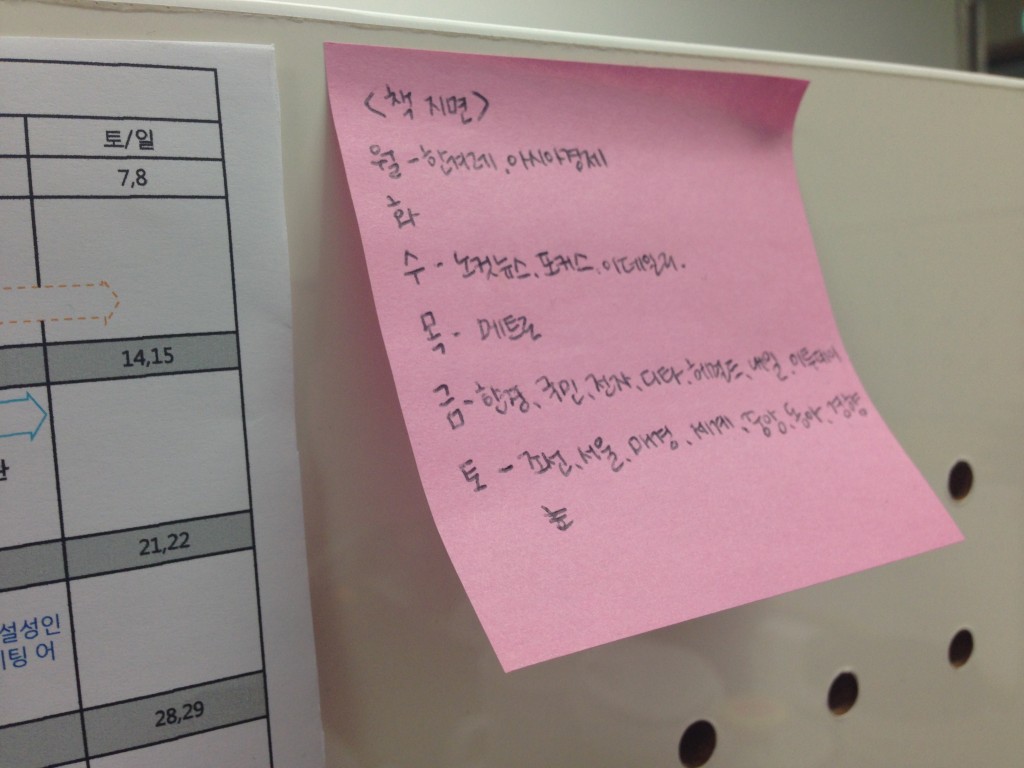 토/일
7,8
14,15
21,22
설성인
팅 어
28,29
<책 지면>
월 - 한겨레, 아시아경제
화
수 - 노컷뉴스, 포커스, 이데일리.
목 - 메트로
금 - 한경, 국민, 전자, 디타, 헤럴드, 내일, 이투데이
토 - 조선, 서울, 매경, 세계, 중앙, 동아, 경향